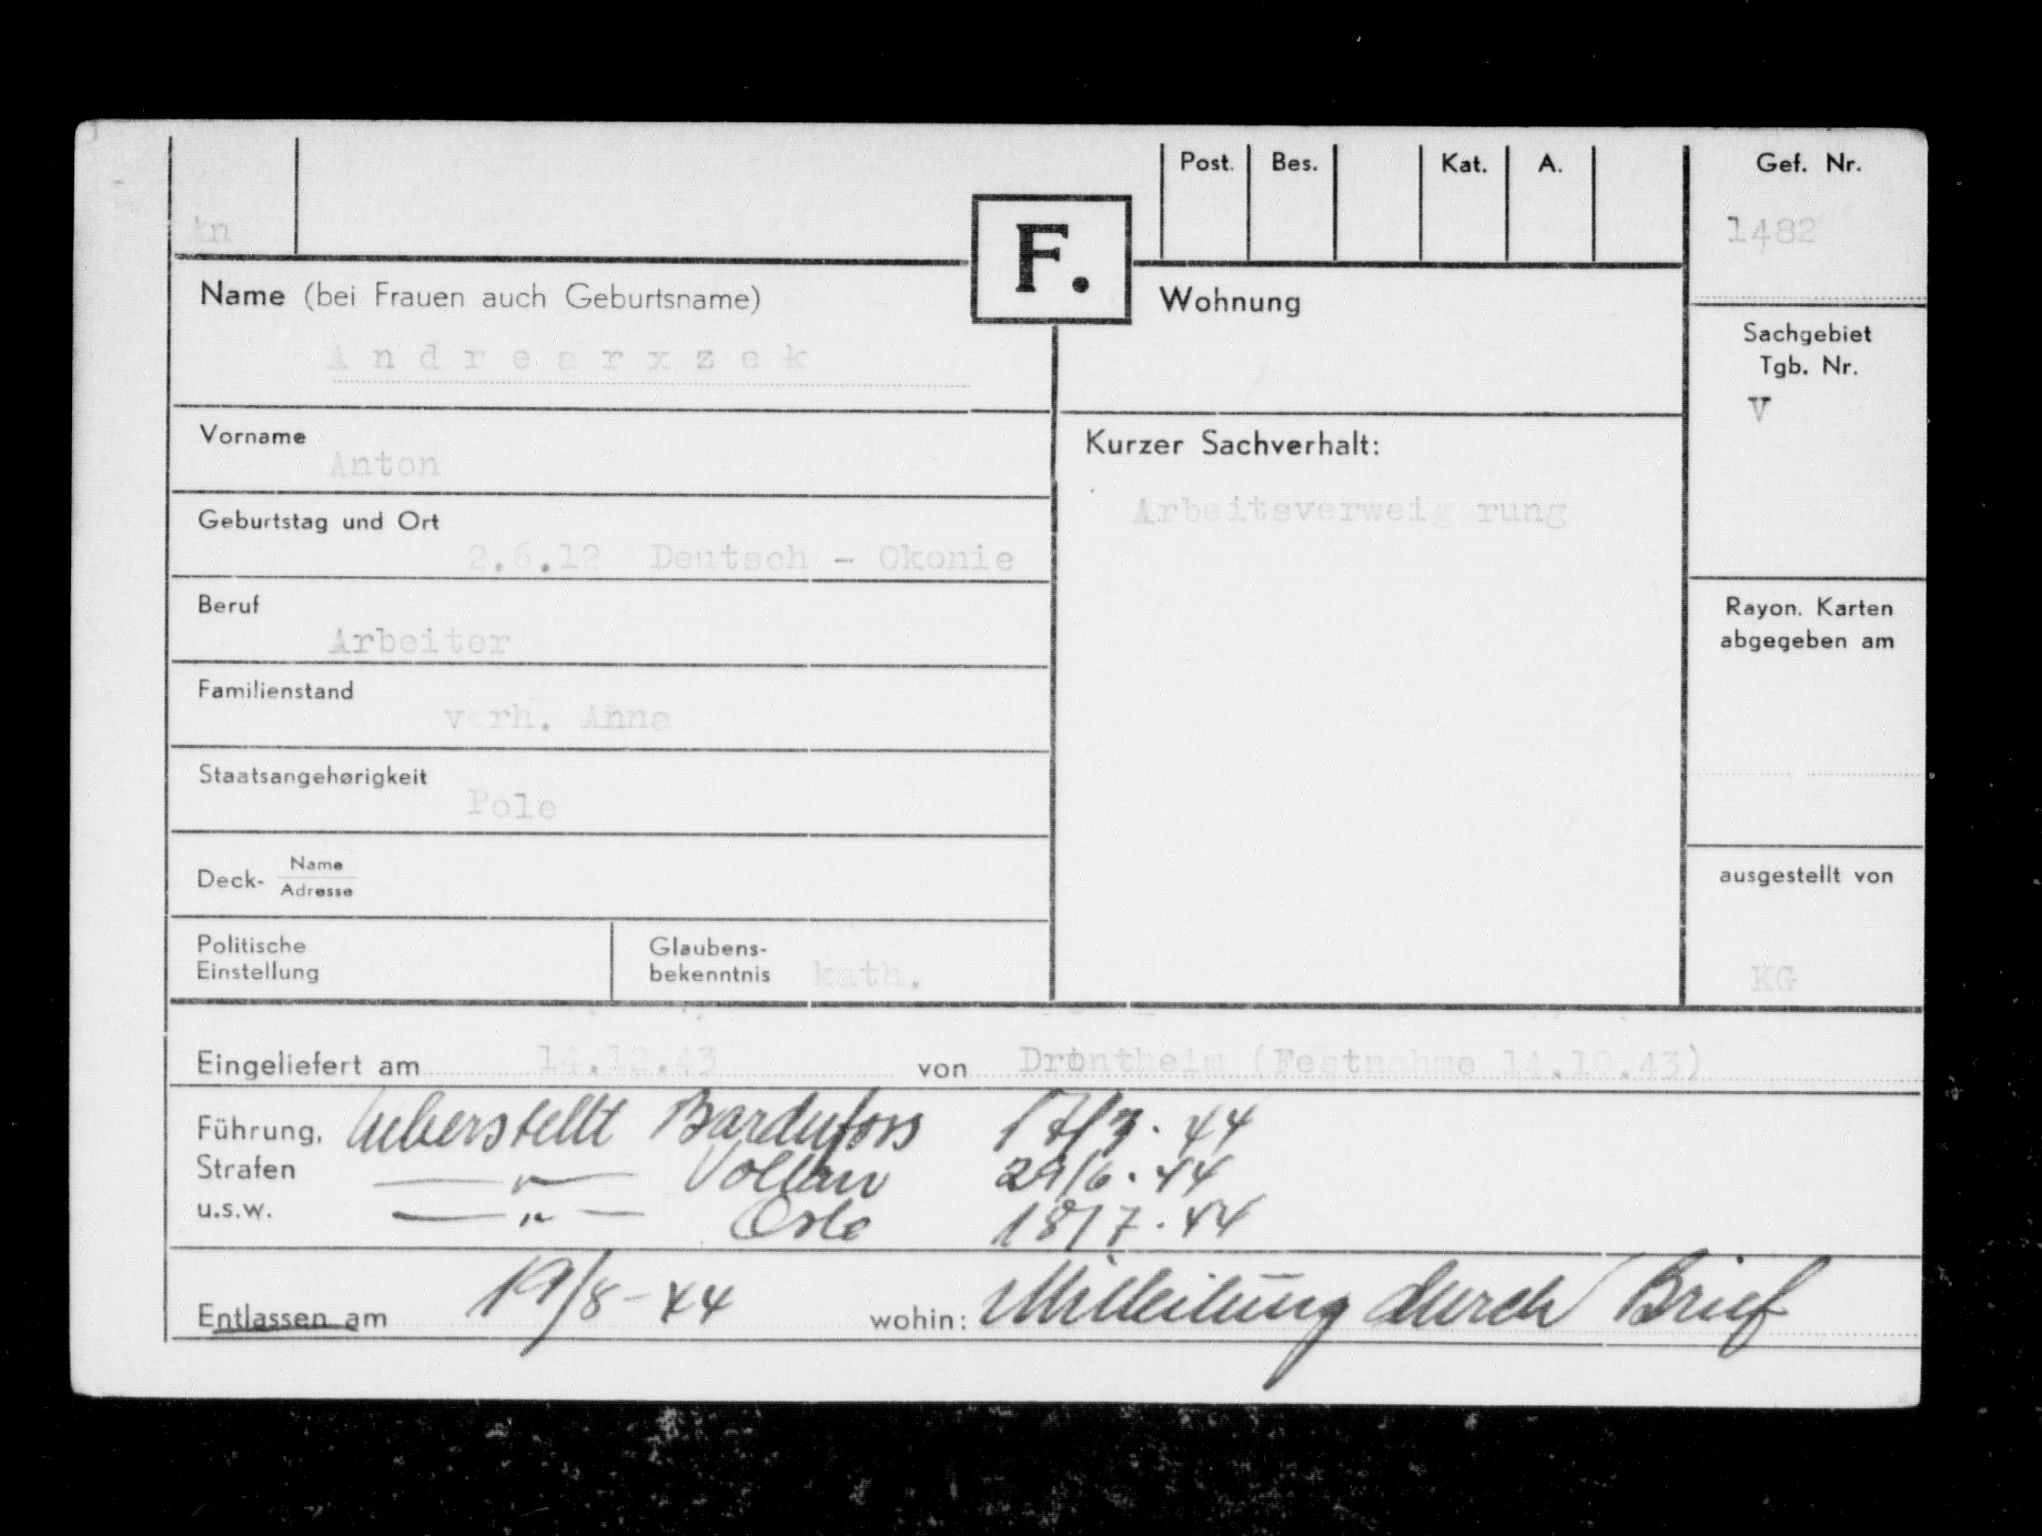 An
Post. Bes. Kat. A. Gef. Nr.
1482
F.
Name (bei Frauen auch Geburtsname)
Andrearxzek
Wohnung
Sachgebiet
Tgb. Nr.
V
Vorname
Anton
Kurzer Sachverhalt:
Arbeitsverweig rung
Geburtstag und Ort
2.6.12 Deutsch - Okonie
Beruf
Arbeiter
Rayon. Karten
abgegeben am
Familienstand
verh. Anna
Staatsangehørigkeit
Pole
Deck- Name
Adresse
ausgestellt von
Politische
Einstellung
Glaubens-
bekenntnis kath.
KG
Eingeliefert am 14.12.43 von Drontheim (Festnahme 14.10.43)
Führung, Ueberstellt Bardufoss 17/3.44
Strafen — " — Vollan 29/6.44
u.s.w. — " — Oslo 18/7.44
Entlassen am 19/8-44 wohin: Mitteilung durch Brief